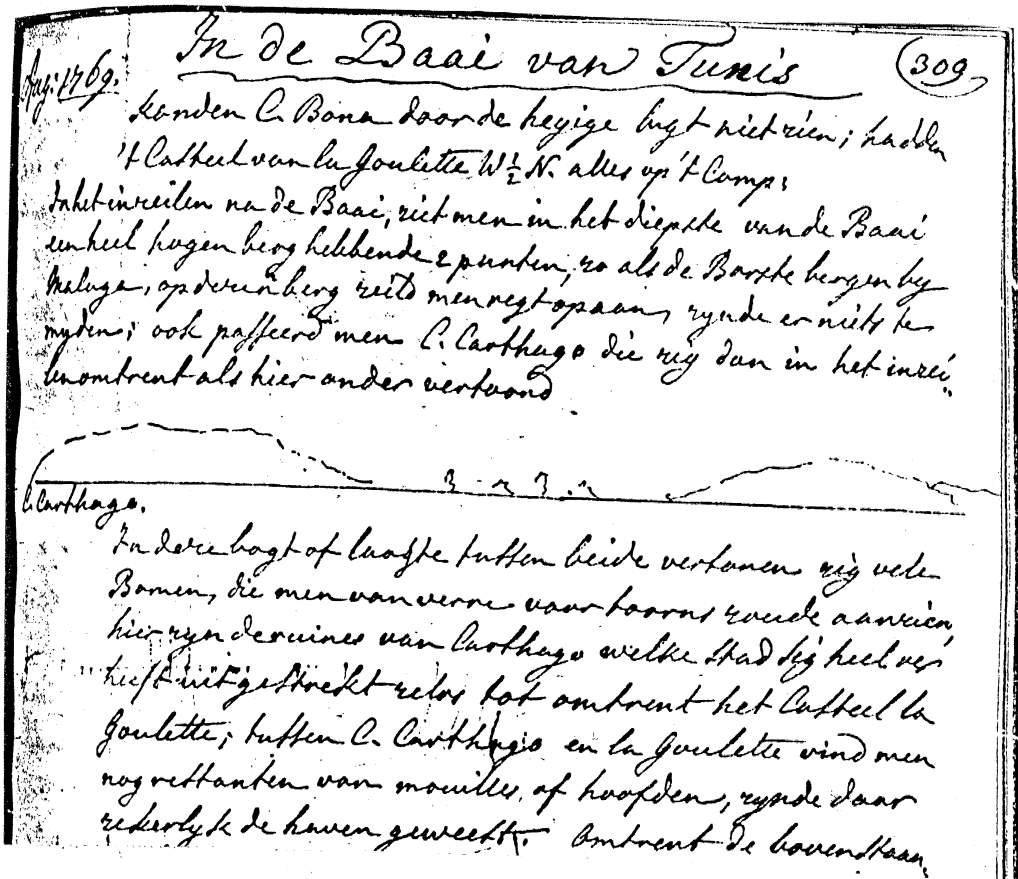 In de Baai van Tunis
309
Aug: 1769.
konden C. Bona door de heyige lugt niet zien; hadden
't Casteel van la Goulette W½N. alles op 't Comp:
In het inzeilen na de Baai, ziet men in het diepste van de Baai
een heel hogen berg hebbende 2 punten, zo als de Borste bergen by
Malaga, op deze berg zeild men regt op aan, zynde er niets te
myden; ook passeerd men C. Carthago die zig dan in het inzei„
len omtrent als hier onder vertoond
C. Carthago.
In deze bogt of laagte tussen beide vertonen zig vele
Bomen, die men van verre voor toorns zoude aanzien,
hier zyn de ruines van Carthago welke stad sig heel ver
heeft uitgestrekt zelvs tot omtrent het Casteel la
Goulette; tussen C. Carthago en la Goulette vind men
nog restanten van mouilles of hoofden, zynde daar
zekerlyk de haven geweest. Omtrent de bovenstaan„